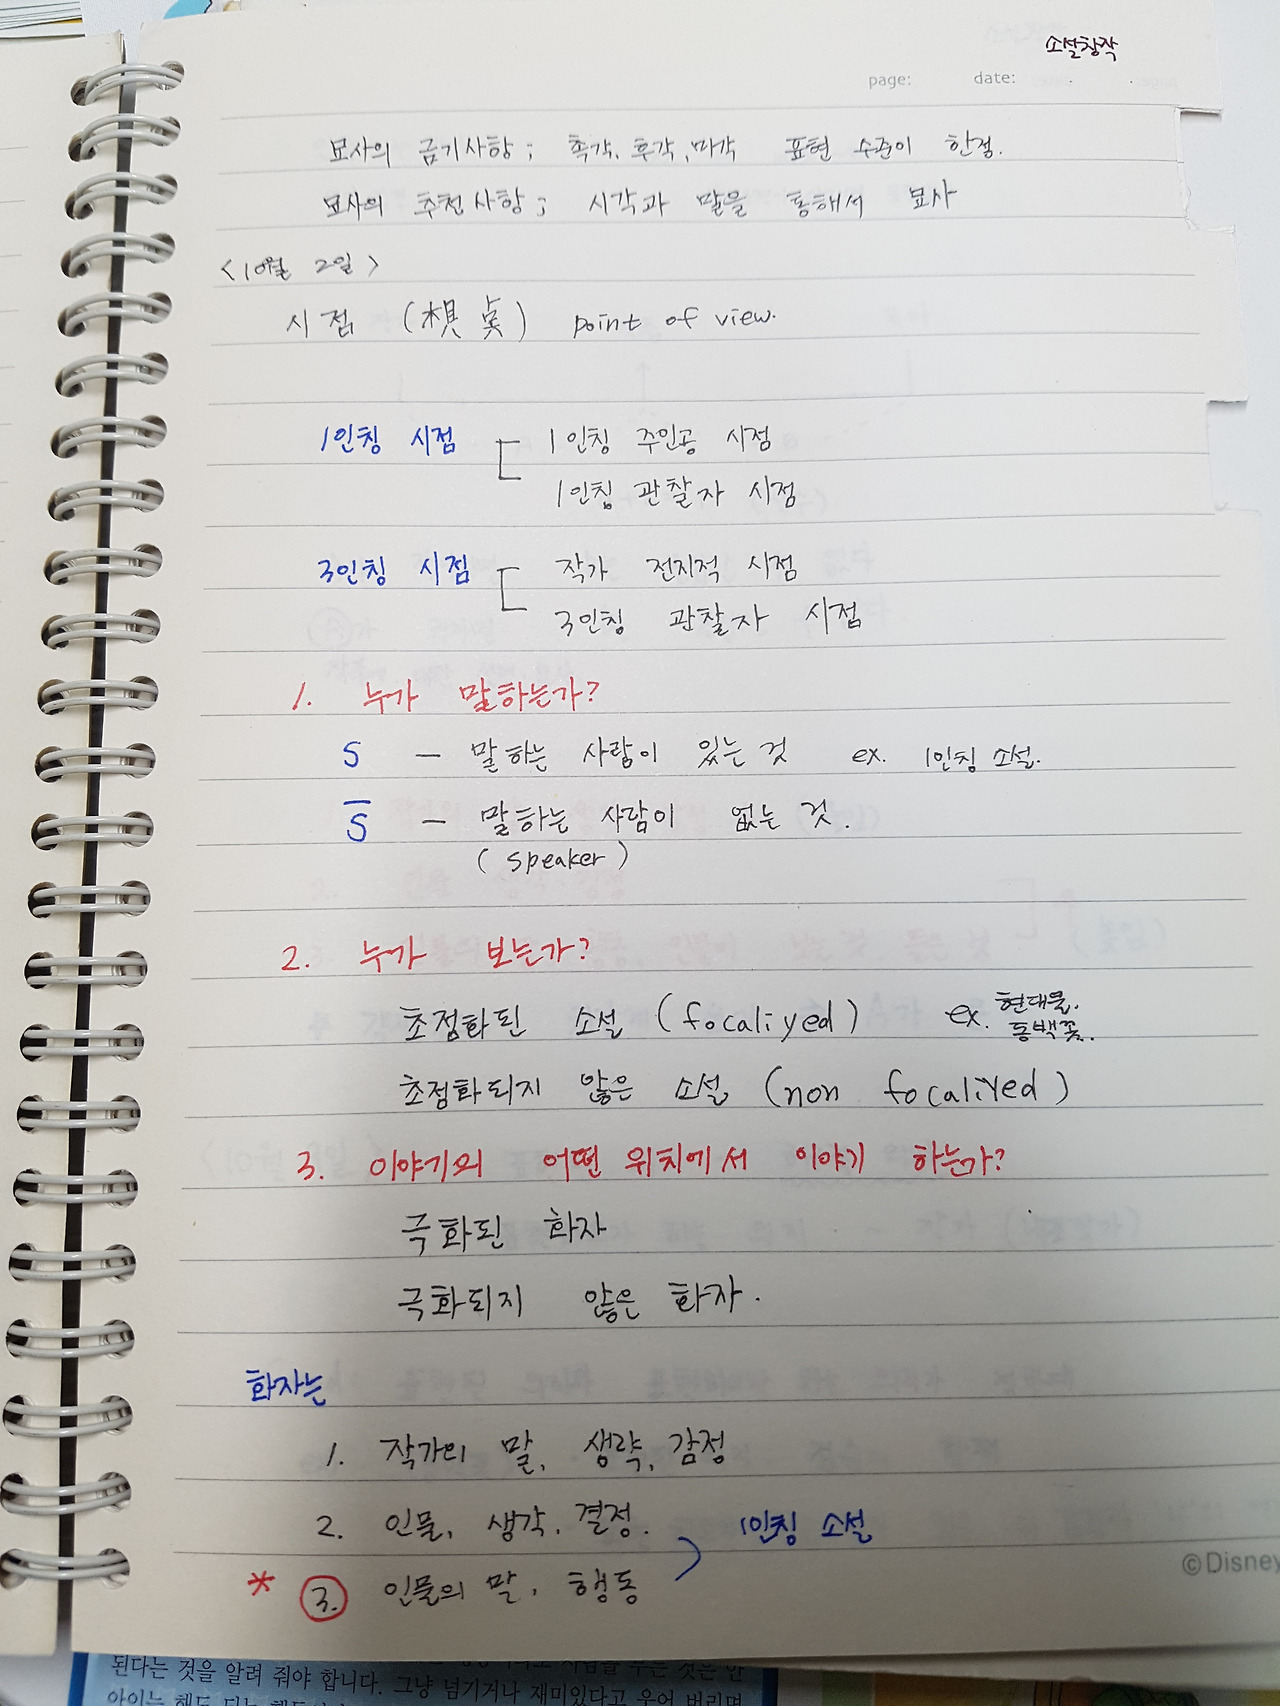 소설창작
page: date: . .
묘사의 금기사항; 촉각, 후각, 미각 표현 수준이 한정.
묘사의 추천사항; 시각과 말을 통해서 묘사
<10월 2일>
시점 (視点) point of view.
1인칭 시점 1인칭 주인공 시점
1인칭 관찰자 시점
3인칭 시점 작가 전지적 시점
3인칭 관찰자 시점
1. 누가 말하는가?
S - 말하는 사람이 있는 것 ex. 1인칭 소설.
S̅ - 말하는 사람이 없는 것.
(speaker)
2. 누가 보는가?
초점화된 소설 (focaliyed) ex. 현대물.
동백꽃.
초점화되지 않은 소설 (non focaliyed)
3. 이야기의 어떤 위치에서 이야기 하는가?
극화된 화자
극화되지 않은 화자.
화자는
1. 작가의 말, 생략, 감정
2. 인물, 생각, 결정.
1인칭 소설
* 3. 인물의 말, 행동
©Disney
된다는 것을 알려 줘야 합니다. 그냥 넘기거나 재미있다고 웃어 버리면